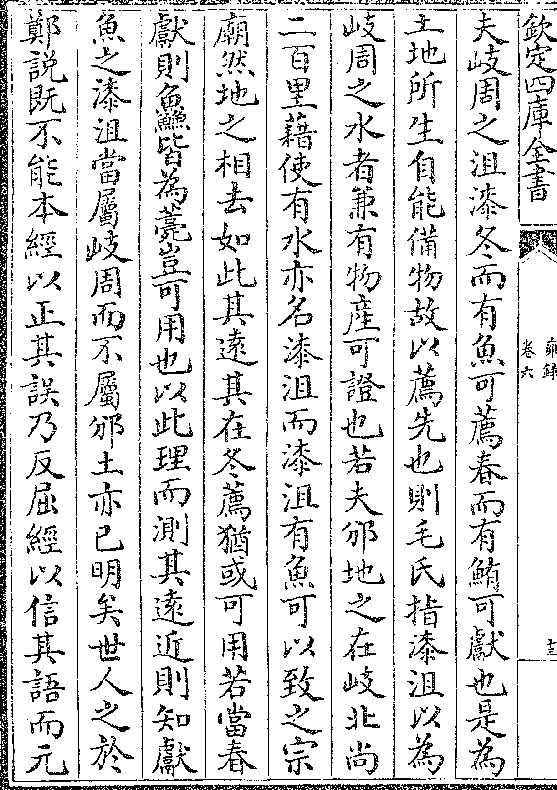 欽定四庫全書
雍錄
卷六
十三
夫岐周之沮漆冬而有魚可薦春而有鮪可獻也是為
土地所生自能備物故以薦先也則毛氏指漆沮以為
岐周之水者兼有物產可證也若夫邠地之在岐北尚
二百里藉使有水亦名漆沮而漆沮有魚可以致之宗
廟然地之相去如此其遠其在冬薦猶或可用若當春
獻則魚鱻皆為薧豈可用也以此理而測其遠近則知獻
魚之漆沮當屬岐周而不屬邠土亦已明矣世人之於
鄭説既不能本經以正其誤乃反屈經以信其語而元